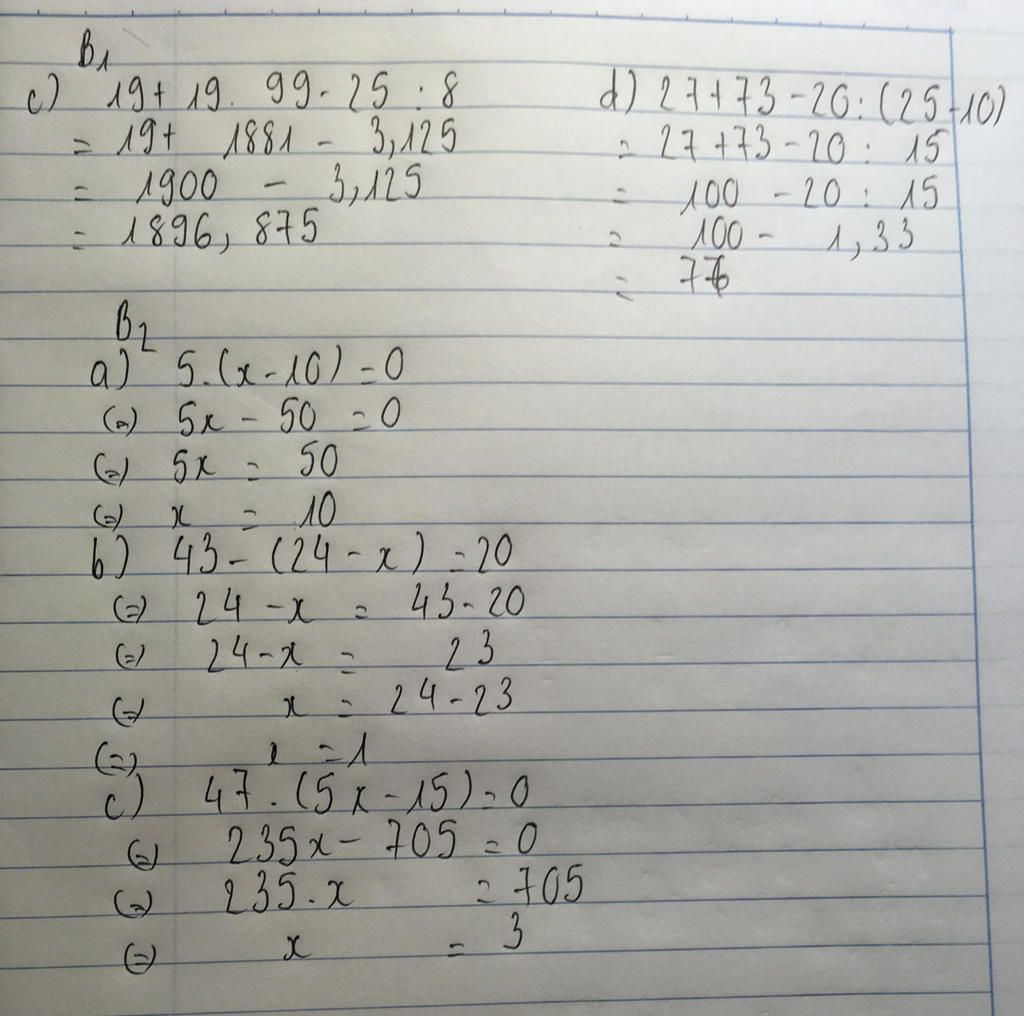 B1
c) 19 + 19. 99 - 25 : 8
= 19 + 1881 - 3,125
= 1900 - 3,125
= 1896,875
d) 27 + 73 - 20 : (25 - 10)
= 27 + 73 - 20 : 15
= 100 - 20 : 15
= 100 - 1,33
=
B2
a) 5.(x - 10) = 0
(=) 5x - 50 = 0
(=) 5x = 50
(=) x = 10
b) 43 - (24 - x) = 20
(=) 24 - x = 43 - 20
(=) 24 - x = 23
(=) x = 24 - 23
(=) x = 1
c) 47. (5x - 15) = 0
(=) 235x - 705 = 0
(=) 235.x = 705
(=) x = 3